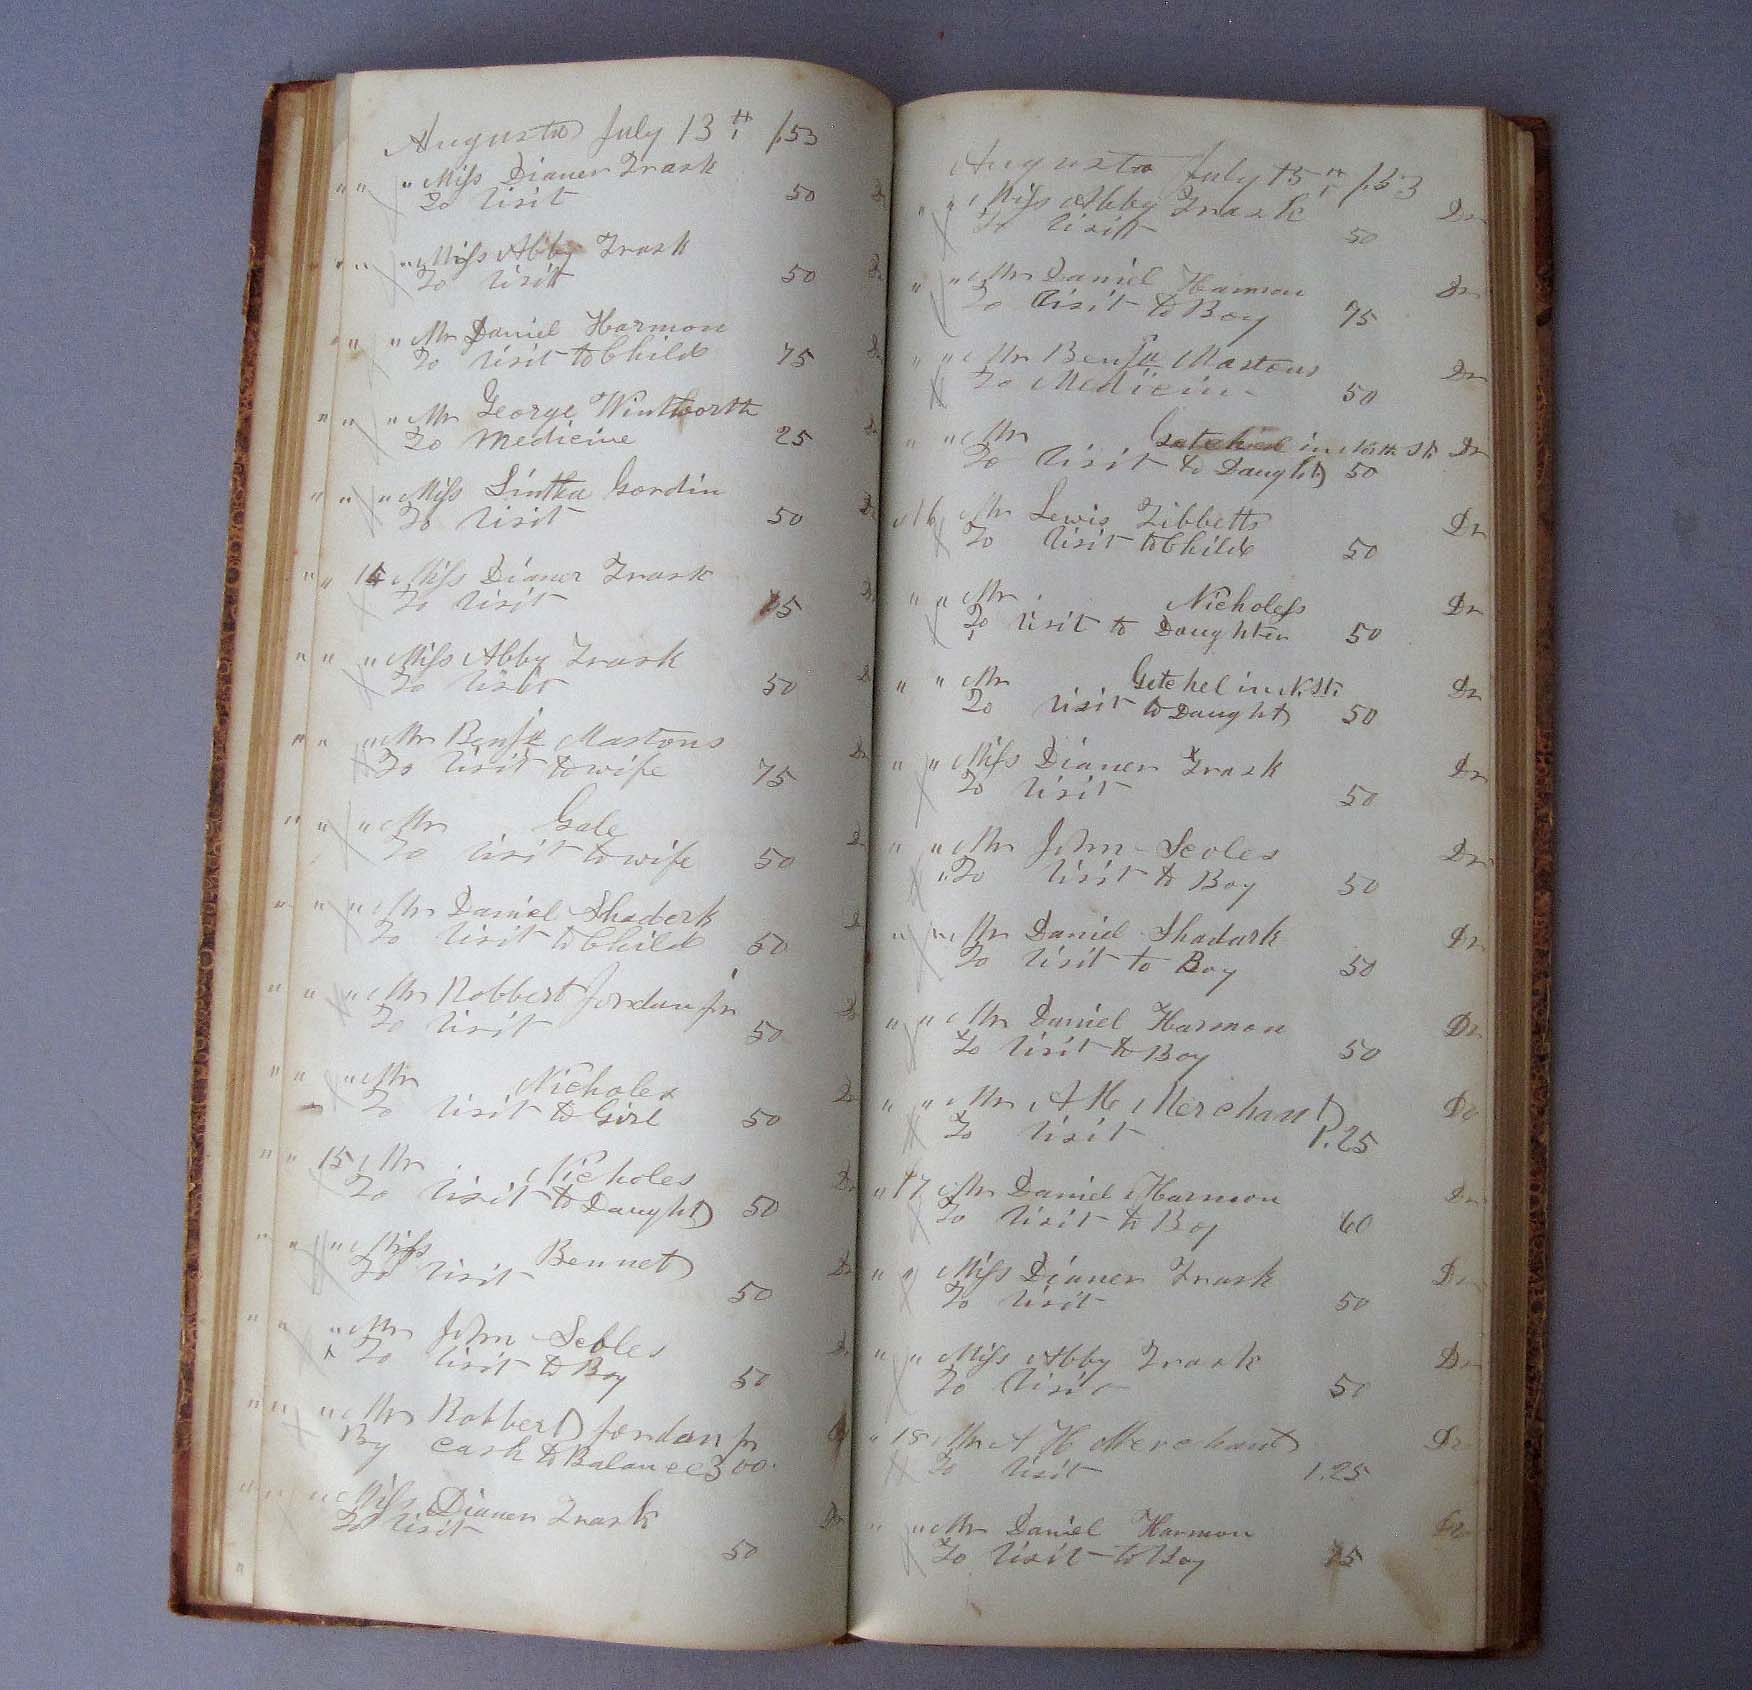 Augusta July 13th /53
" " " Miss Dianer Trask
To Visit 50 Dr
" " " Miss Abby Trask
To Visit 50 Dr
" " " Mr Daniel Harmon
To Visit to Child 75 Dr
" " " Mr George Wintworth
To Medicine 25 Dr
" " " Miss Sintha Gordin
To Visit 50 Dr
" " 14 Miss Dianer Trask
To Visit 75 Dr
" " " Miss Abby Trask
To Visit 50 Dr
" " " Mr Benja Mastons
To Visit to wife 75 Dr
" " " Mr Gale
To Visit to wife 50 Dr
" " " Mr Daniel Shadork
To Visit to Child 50 Dr
" " " Mr Robbert Jordan Jr
To Visit 50 Dr
" " " Mr Nicholes
To Visit to Girl 50 Dr
" " 15 Mr Nicholes
To Visit to Daught 50 Dr
" " " Miss Bennet
To Visit 50 Dr
" " " Mr John Scoles
To Visit to Boy 50 Dr
" " " Mr Robbert Jordan Jr
By Cash to Balance 3 00
" " " Miss Dianer Trask
To Visit 50 Dr
Augusta July 15th /53
" " Miss Abby Trask Dr
To Visit 50
" " Mr Daniel Harmon Dr
To Visit to Boy 75
" " Mr Benja Mastons Dr
To Medicin 50
" " Mr Getchel in St Dr
To Visit to Daught 50
" 16 Mr Lewis Tibbetts Dr
To Visit to Child 50
" " Mr Nicholess Dr
To Visit to Daughter 50
" " Mr Getchel in N. St. Dr
To Visit to Daught 50
" " Miss Dianer Trask Dr
To Visit 50
" " Mr John Scoles Dr
" To Visit to Boy 50
" " Mr Daniel Shadark Dr
To Visit to Boy 50
" " Mr Daniel Harmon Dr
To Visit to Boy 50
" " Mr A H Merchant Dr
To Visit 1.25
" 17 Mr Daniel Harmon Dr
To Visit to Boy 60
" " Miss Dianer Trask Dr
To Visit 50
" " Miss Abby Trask Dr
To Visit 50
" 18 Mr A H Merchant Dr
To Visit 1.25
" " Mr Daniel Harmon Dr
To Visit to Boy 75